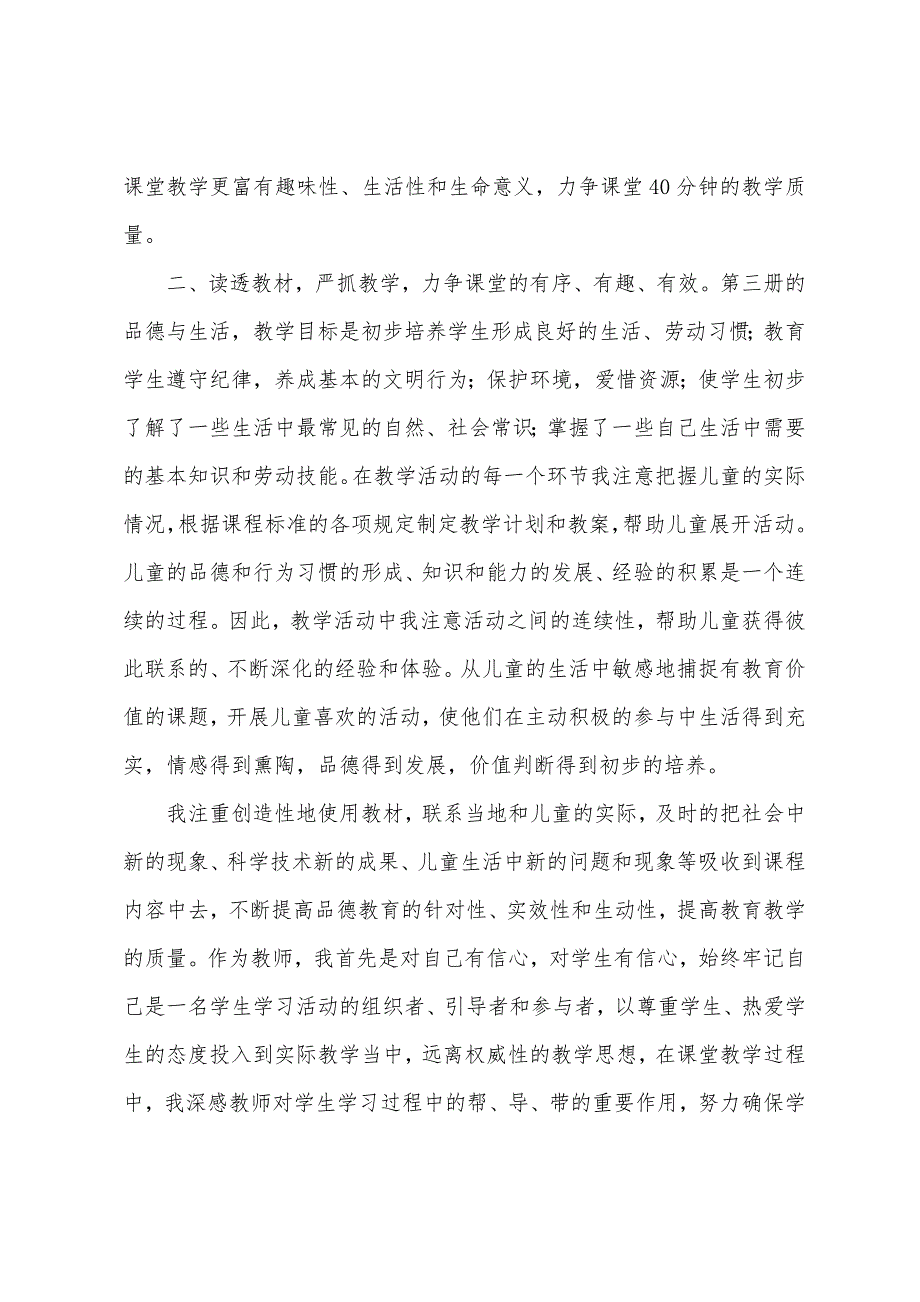 课堂教学更富有趣味性、生活性和生命意义，力争课堂 40 分钟的教学质
量。
二、读透教材，严抓教学，力争课堂的有序、有趣、有效。第三册的
品德与生活，教学目标是初步培养学生形成良好的生活、劳动习惯；教育
学生遵守纪律，养成基本的文明行为；保护环境，爱惜资源；使学生初步
了解了一些生活中最常见的自然、社会常识；掌握了一些自己生活中需要
的基本知识和劳动技能。在教学活动的每一个环节我注意把握儿童的实际
情况，根据课程标准的各项规定制定教学计划和教案，帮助儿童展开活动。
儿童的品德和行为习惯的形成、知识和能力的发展、经验的积累是一个连
续的过程。因此，教学活动中我注意活动之间的连续性，帮助儿童获得彼
此联系的、不断深化的经验和体验。从儿童的生活中敏感地捕捉有教育价
值的课题，开展儿童喜欢的活动，使他们在主动积极的参与中生活得到充
实，情感得到熏陶，品德得到发展，价值判断得到初步的培养。
我注重创造性地使用教材，联系当地和儿童的实际，及时的把社会中
新的现象、科学技术新的成果、儿童生活中新的问题和现象等吸收到课程
内容中去，不断提高品德教育的针对性、实效性和生动性，提高教育教学
的质量。作为教师，我首先是对自己有信心，对学生有信心，始终牢记自
己是一名学生学习活动的组织者、引导者和参与者，以尊重学生、热爱学
生的态度投入到实际教学当中，远离权威性的教学思想，在课堂教学过程
中，我深感教师对学生学习过程中的帮、导、带的重要作用，努力确保学